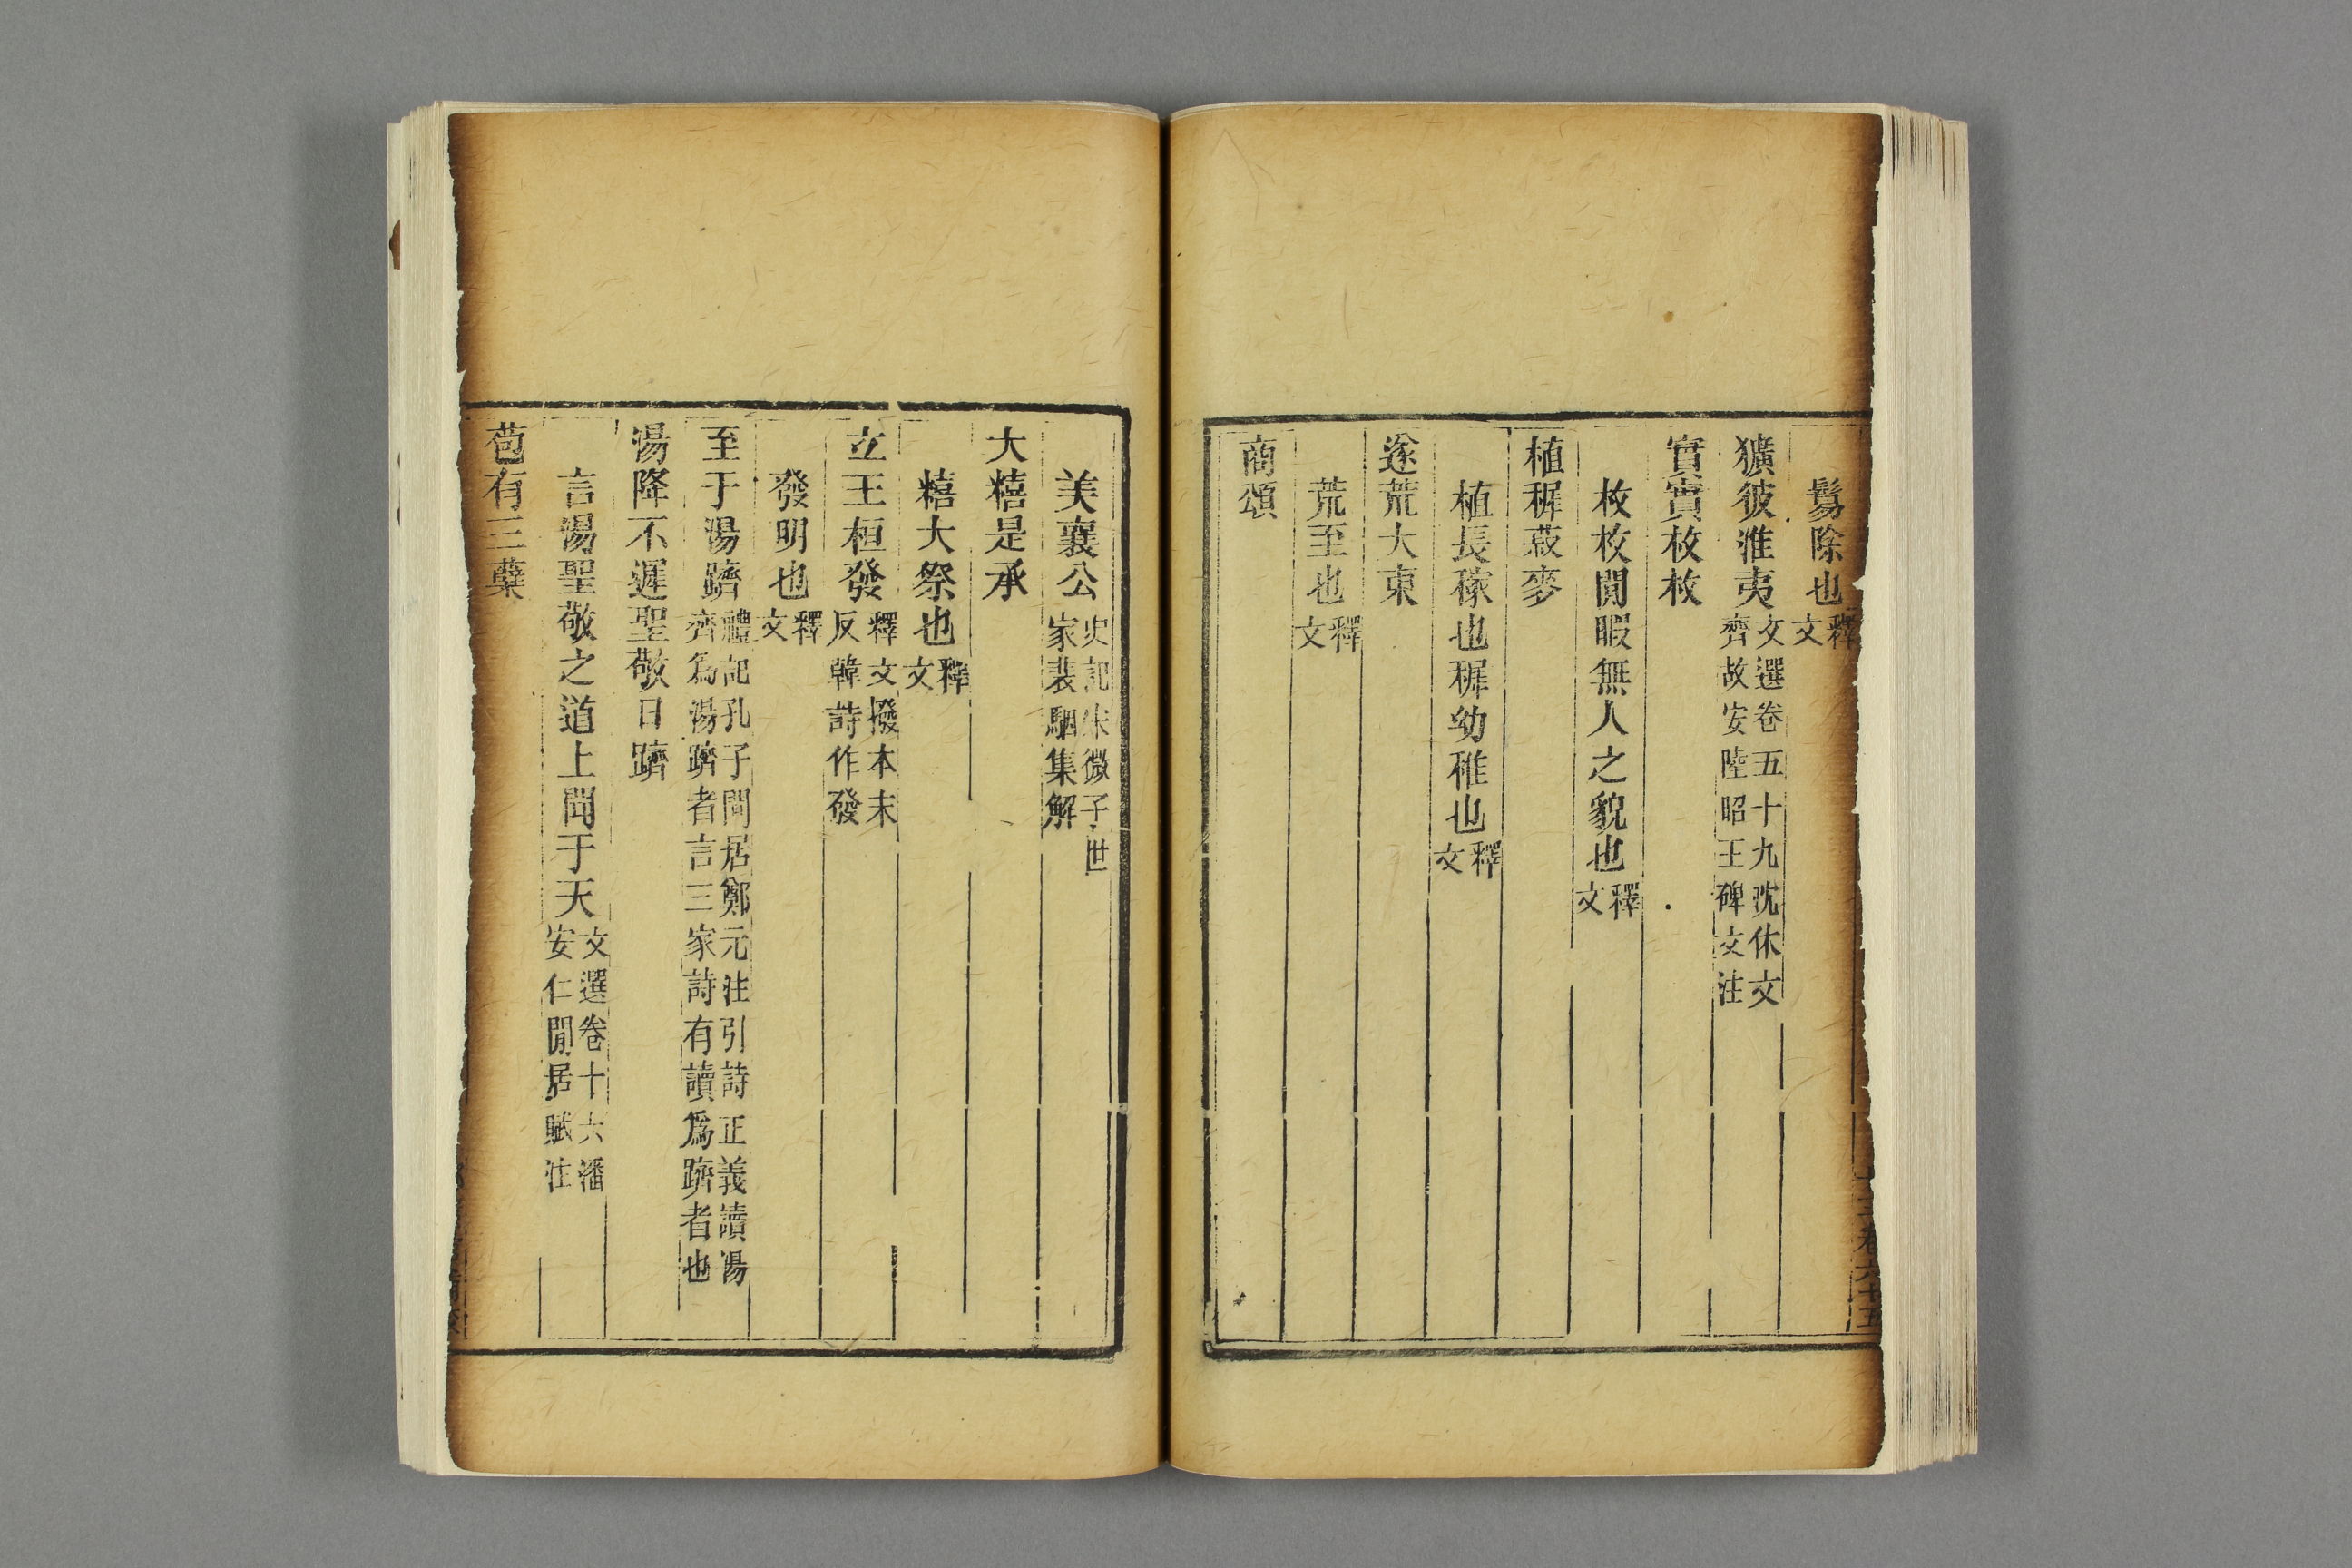 鬄除也釋文
獷彼淮夷文選卷五十九沈休文齊故安陸昭王碑文注
實實枚枚
枚枚閒暇無人之貌也釋文
植稺菽麥
植長稼也稺幼稚也釋文
遂荒大東
荒至也釋文
商頌
卷六十五
美襄公史記宋微子世家裴駰集解
大糦是承
糦大祭也釋文
立王桓發釋文撥本末反韓詩作發
發明也釋文
至于湯躋禮記孔子閒居鄭元注引詩正義讀湯齊爲湯躋者言三家詩有讀爲躋者也
湯降不遲聖敬日躋
言湯聖敬之道上聞于天文選卷十六潘安仁閒居賦注
苞有三蘖